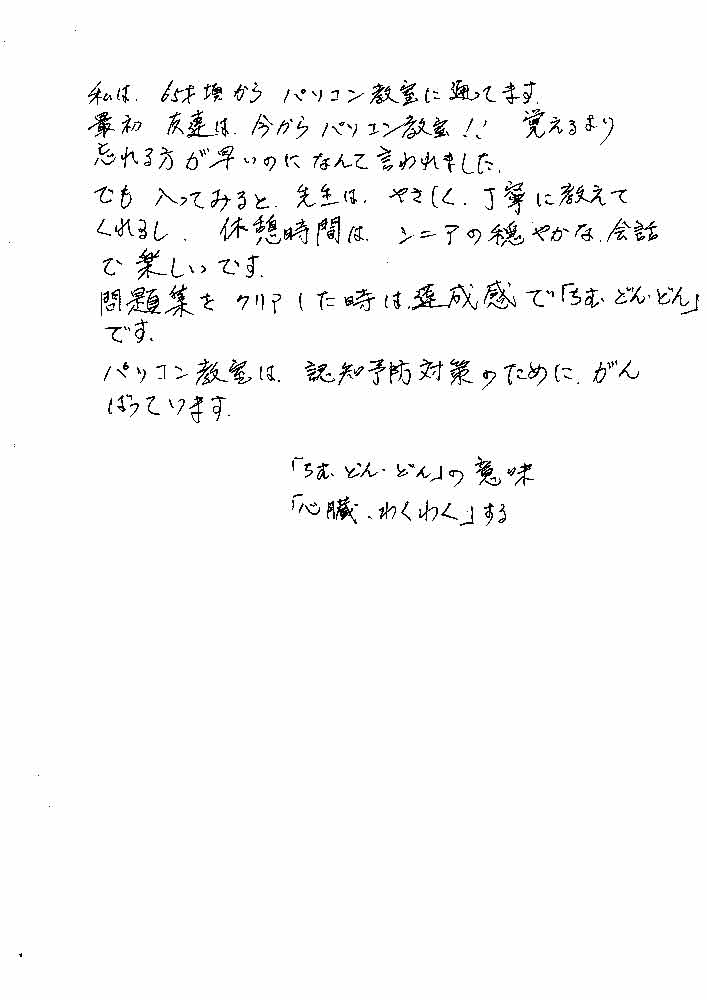 私は、65才頃から パソコン教室に通ってます。
最初 友達は、今からパソコン教室!! 覚えるより
忘れる方が早いのに なんて言われました。
でも 入ってみると、先生は、やさしく、丁寧に教えて
くれるし、休憩時間は、シニアの穏やかな、会話
で 楽しいです。
問題集を クリアした時は、達成感で「ちむ どん・どん」
です。
パソコン教室は、認知予防対策のために、がん
ばっています。
「ちむ どん・どん」の意味
「心臓、わくわく」する